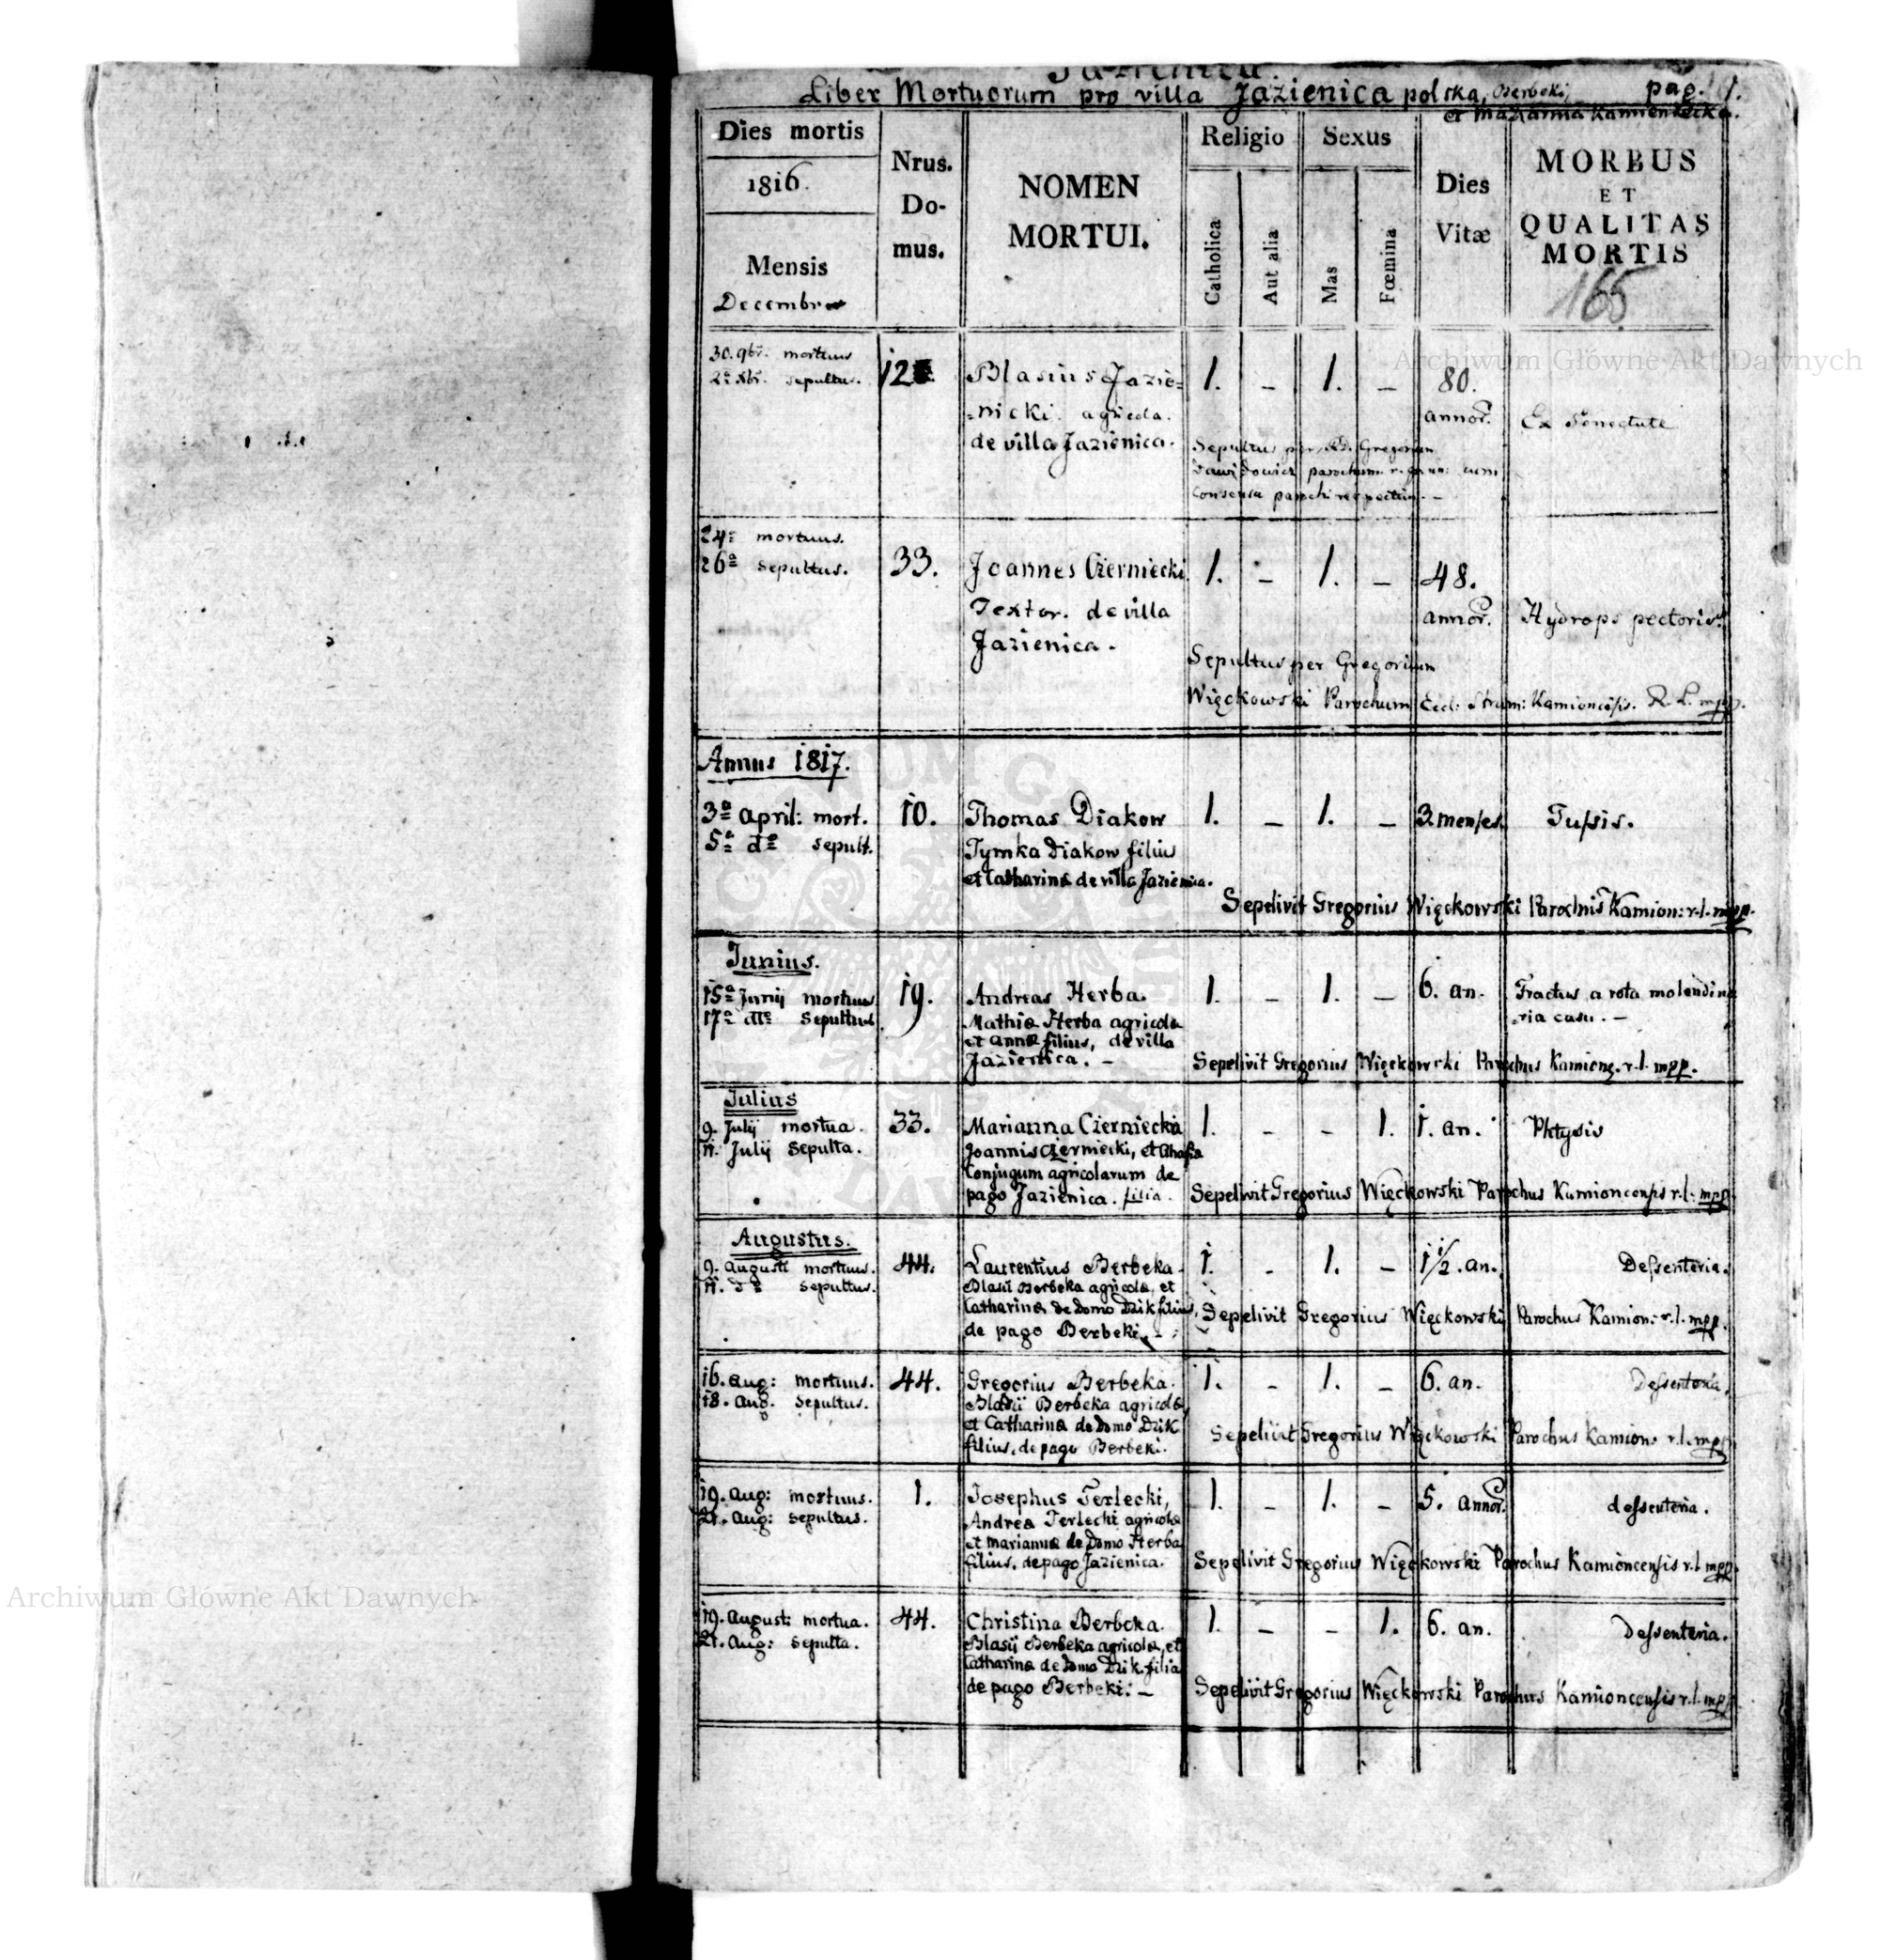 Liber Mortuorum pro villa Jazienica polska, Berbeki, pag. 1.
et Maziarnia Kamienecka.
Dies mortis
1816.
Mensis
Decembre
Nrus. Do- mus.
NOMEN MORTUI.
Religio
Catholica
Aut alia
Sexus
Mas
Fœmina
Dies Vitæ
MORBUS
ET
QUALITAS
MORTIS
165
30. 9br. mortuus 12 Blasius Jazie= 1. – 1. – 80.
2a Xbr. sepultus.
=nicki agricola. annor. Ex Senectute
de villa Jazienica.
Sepultus per Gregorium
Dawidowicz parochum cum
Consensu parochi
24a mortuus.
26a sepultus. 33. Joannes Czerniecki 1. – 1. – 48.
Textor. de villa annor. Hydrops pectoris.
Jazienica.
Sepultus per Gregorium
Więckowski Parochum Eccl: Kamioncẽsis. R. L. mpp.
Annus 1817.
3a April: mort. 10. Thomas Diakow 1. – 1. – 3. menses. Tussis.
5a do sepult. Tymka Diakow filius
et Catharinæ de villa Jazienica.
Sepelivit Gregorius Więckowski Parochus Kamion: r.l. mpp.
Junius.
15a Junij mortuus 19. Andreas Herba. 1. – 1. – 6. an. Fractus a rota molendina
17a dto Sepultus Mathiæ Herba agricolæ =ria casu. –
et Annæ filius, de villa
Jazienica. –
Sepelivit Gregorius Więckowski Parochus Kamionc. r.l. mpp.
Julius
9. Julij mortua. 33. Marianna Czerniecka 1. – – 1. 1. an. Phtysis
11. Julij Sepulta. Joannis Czerniecki, et
Conjugum agricolarum de
pago Jazienica. filia.
Sepelivit Gregorius Więckowski Parochus Kamioncensis r.l. mpp
Augustus.
9. Augusti mortuus. 44. Laurentius Berbeka 1. – 1. – 1 1/2. an. Dessenteria.
11. do sepultus. Blasii Berbeka agricolæ, et
Catharinæ de Domo Dzik filius,
de pago Berbeki. –
Sepelivit Gregorius Więckowski Parochus Kamion: r.l. mpp.
16. Aug: mortuus. 44. Gregorius Berbeka. 1. – 1. – 6. an. Dessenteria.
18. Aug. Sepultus. Blasii Berbeka agricolæ,
et Catharinæ de Domo Dzik
filius, de pago Berbeki.
Sepelivit Gregorius Więckowski Parochus Kamion: r.l. mpp
19. Aug: mortuus. 1. Josephus Terlecki, 1. – 1. – 5. annor. dessenteria.
21. Aug: sepultus. Andreæ Terlecki agricolæ
et Mariannæ de Domo Herba
filius, de pago Jazienica.
Sepelivit Gregorius Więckowski Parochus Kamioncensis r.l. mpp.
19. August: mortua. 44. Christina Berbeka. 1. – – 1. 6. an. Dessenteria.
21. Aug: sepulta. Blasij Berbeka agricolæ, et
Catharinæ de Domo Dzik filia
de pago Berbeki: –
Sepelivit Gregorius Więckowski Parochus Kamioncensis r.l. mpp
Archiwum Główne Akt Dawnych
Archiwum Główne Akt Dawnych